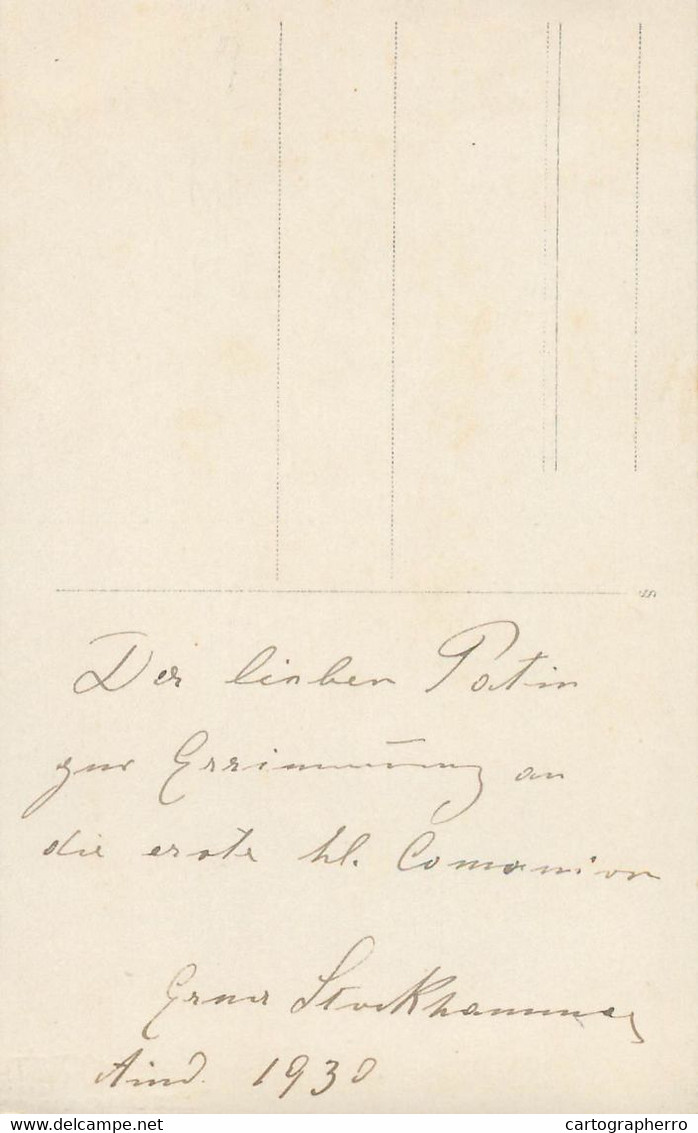 Der lieben Patin
zur Errinnerung an
die erste hl. Comonion
Stockhammer
1930
delcampe.net
cartographerro